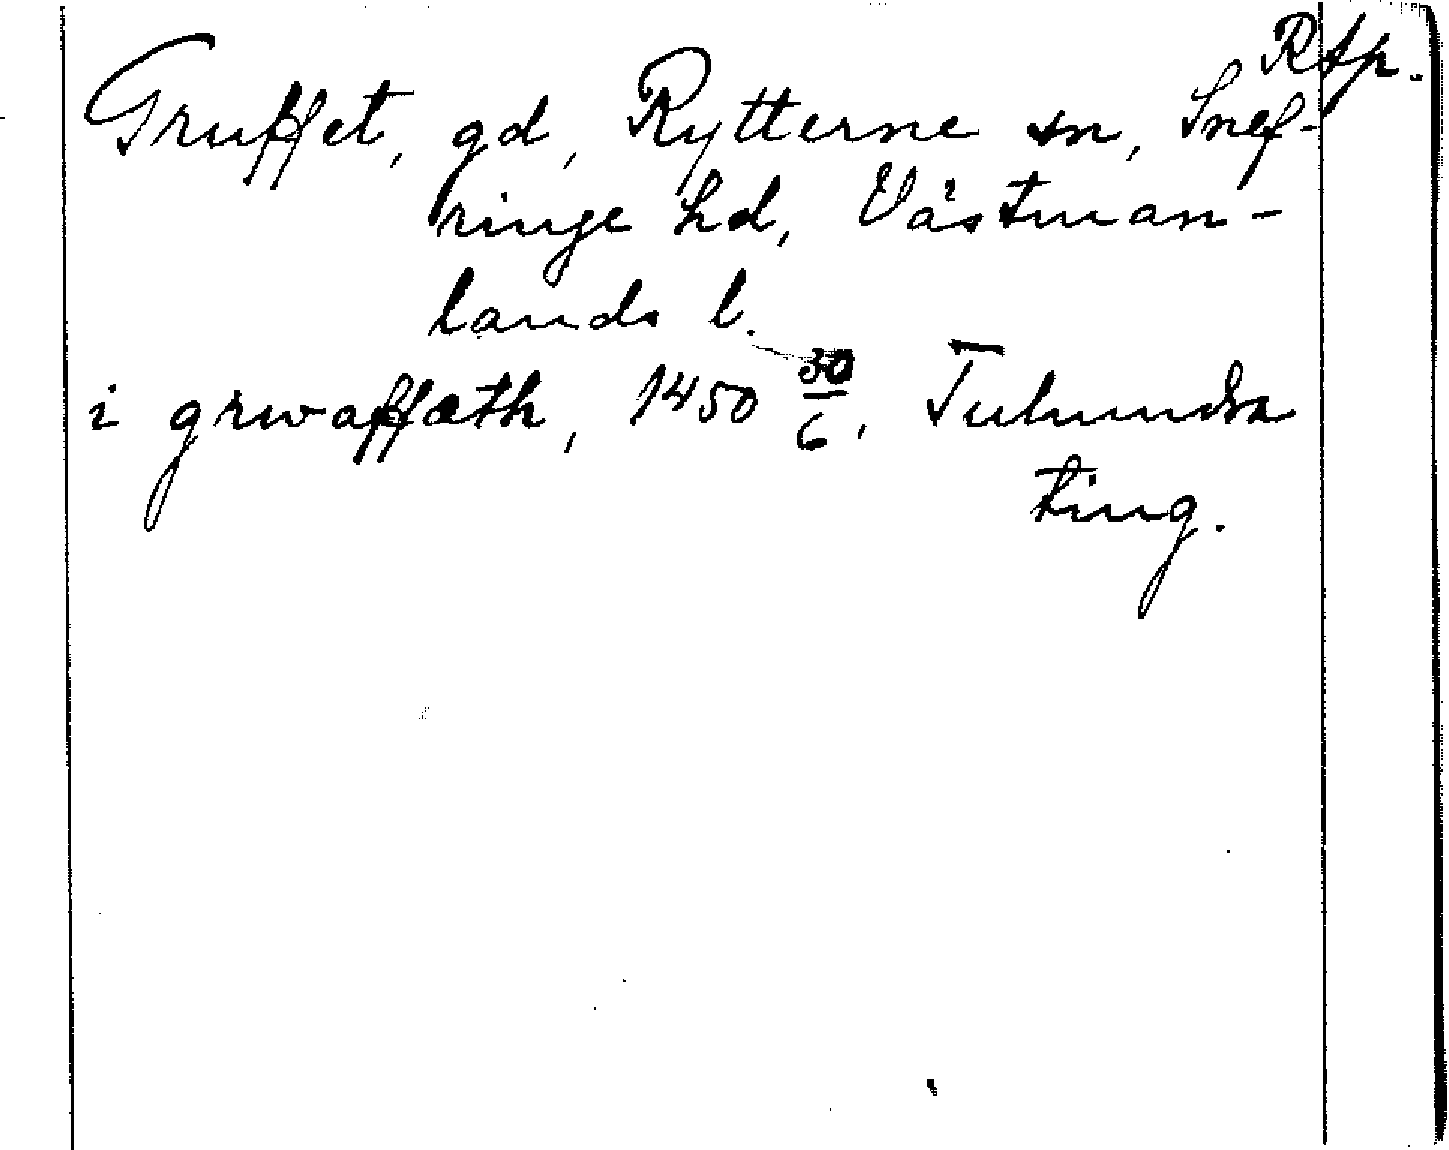 Rtp.
Gruffet, gd, Rytterne sn, Snef-
ringe hd, Västman-
lands l.
i grwaffæth, 1450 30/6, Tuhundra
ting.